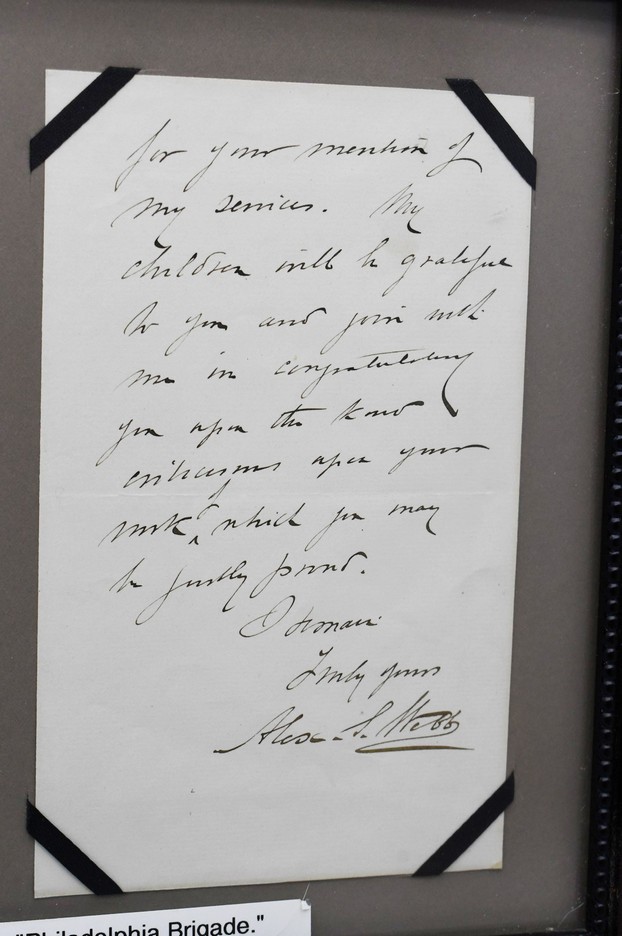 for your mention of
my services. My
children will be grateful
to you and join with
me in congratulating
you upon the kind
criticisms upon your
work of which you may
be justly proud.
I remain
Truly yours
Alex. S. Webb
"Philadelphia Brigade."